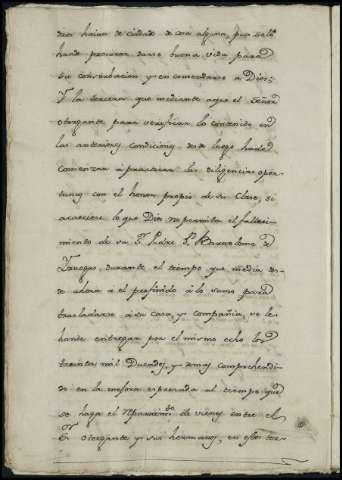 han de procurar darse buena vida para
su conservacion y en comendarse a Dios;
Y la tercera que mediante a que el Señor
otorgante para verificar lo contenido en
las anteriores condiciones desde luego hande
comenzar á practicar las diligencias opor-
tunas con el honor propio de su Clase, si
acaeciere lo que Dios no permita el falleci-
miento de su S.r Padre D. Bartolome de
durante el tiempo que media des-
de ahora á el prefinido á lo sumo para
trasladarse a su casa y compañia, se le
hande entregar por el mismo echo los
treinta mil Ducados, y demas comprehendi-
do en la mejora expresada al tiempo que
se haga el de vienes entre el
Sr. otorgante y sus hermanos, en estos ter-